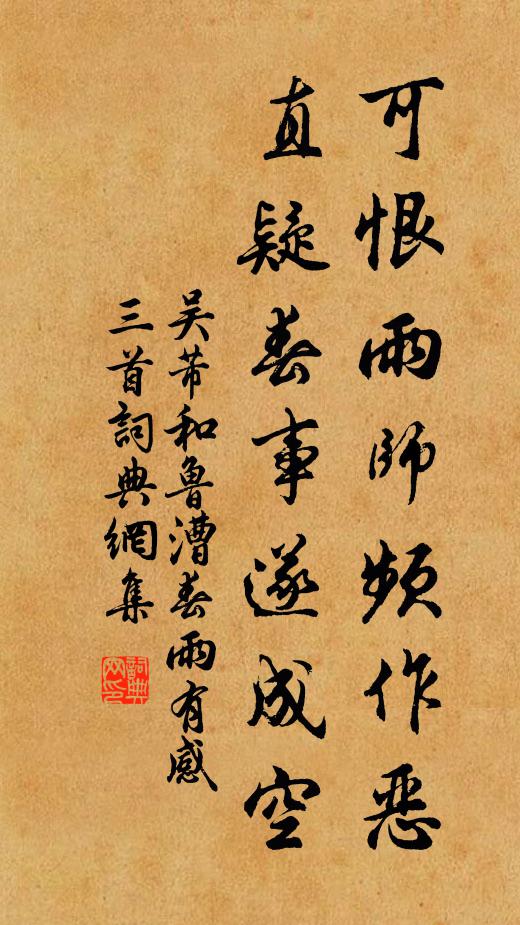 可恨雨師頻作惡
直疑春事遂成空
吳芾和魯漕春雨有感
三首詞典網集
詞典
网印